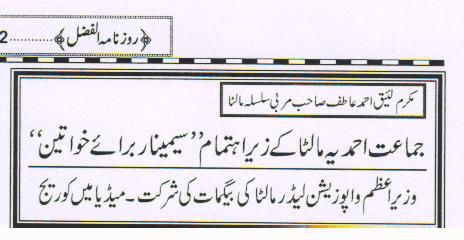 ﴿روزنامہ الفضل﴾..........2
مکرم لئیق احمد عاطف صاحب مربی سلسلہ مالٹا
جماعت احمدیہ مالٹا کے زیر اہتمام ’’سیمینار برائے خواتین‘‘
وزیر اعظم و اپوزیشن لیڈر مالٹا کی بیگمات کی شرکت ۔ میڈیا میں کوریج